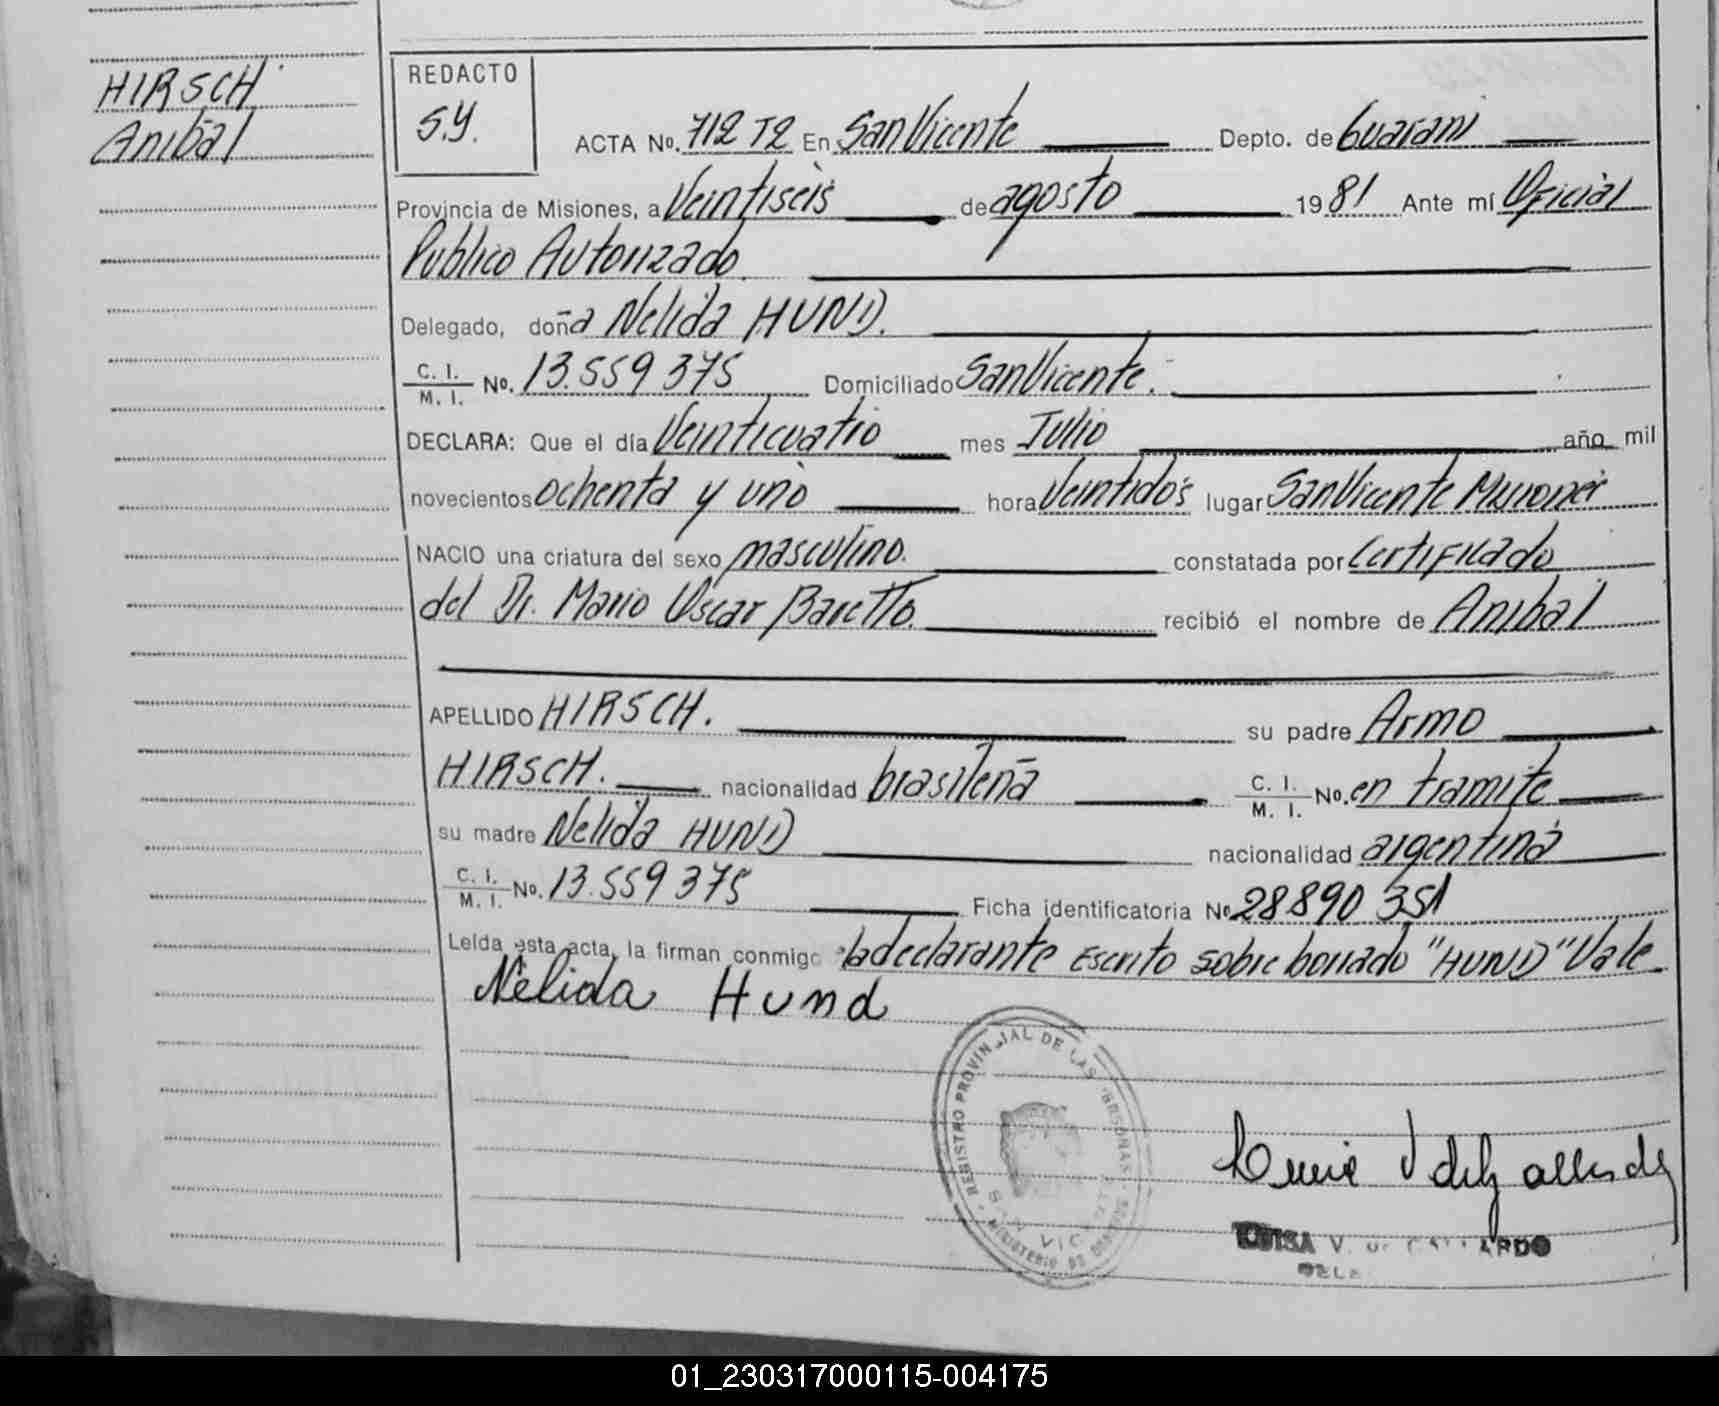 HIRSCH
Anibal
REDACTO
S.Y.
ACTA No. 712 T2 En San Vicente Depto. de Guarani
Provincia de Misiones, a Veintiseis de agosto 1981 Ante mí Oficial
Publico Autorizado
Delegado, doña Nelida HUND.
C. I. / M. I. No. 13.559 375 Domiciliado San Vicente.
DECLARA: Que el día Veinticuatro mes Julio año mil
novecientos ochenta y uno hora Veintidos lugar San Vicente Misiones
NACIO una criatura del sexo masculino. constatada por Certificado
del Dr. Mario Oscar Baretto. recibió el nombre de Anibal
APELLIDO HIRSCH. su padre Armo
HIRSCH. nacionalidad brasileña C. I. / M. I. No. en tramite
su madre Nelida HUND nacionalidad argentina
C. I. / M. I. No. 13.559 375 Ficha identificatoria No 28890 351
Leída esta acta, la firman conmigo la declarante Escrito sobre borrado "HUND" Vale
Nélida Hund
REGISTRO PROVINCIAL DE LAS PERSONAS
MINISTERIO DE GOBIERNO
LUISA V. de GALLARDO
01_230317000115-004175